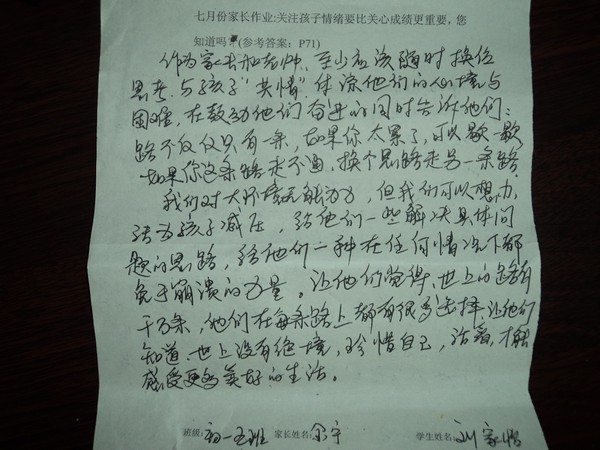 七月份家长作业:关注孩子情绪要比关心成绩更重要，您
知道吗?(参考答案：P71)
作为家长和老师、至少应该随时换位
思考，与孩子“共情”体谅他们的心境与
困难，在鼓动他们奋进的同时告诉他们：
路不仅仅只有一条，如果你太累了，可以歇一歇
如果你这条路走不通，换个思路走另一条路
我们对大环境无能为力，但我们可以想办
法为孩子减压，给他们一些解决具体问
题的思路，给他们一种在任何情况下都
免于崩溃的力量。让他们觉得，世上的路有
千万条，他们在每条路上都有很多选择，让他们
知道，世上没有绝境，珍惜自己，活着，才能
感受更多美好的生活。
班级：初一五班 家长姓名：余宇 学生姓名：刘家怡